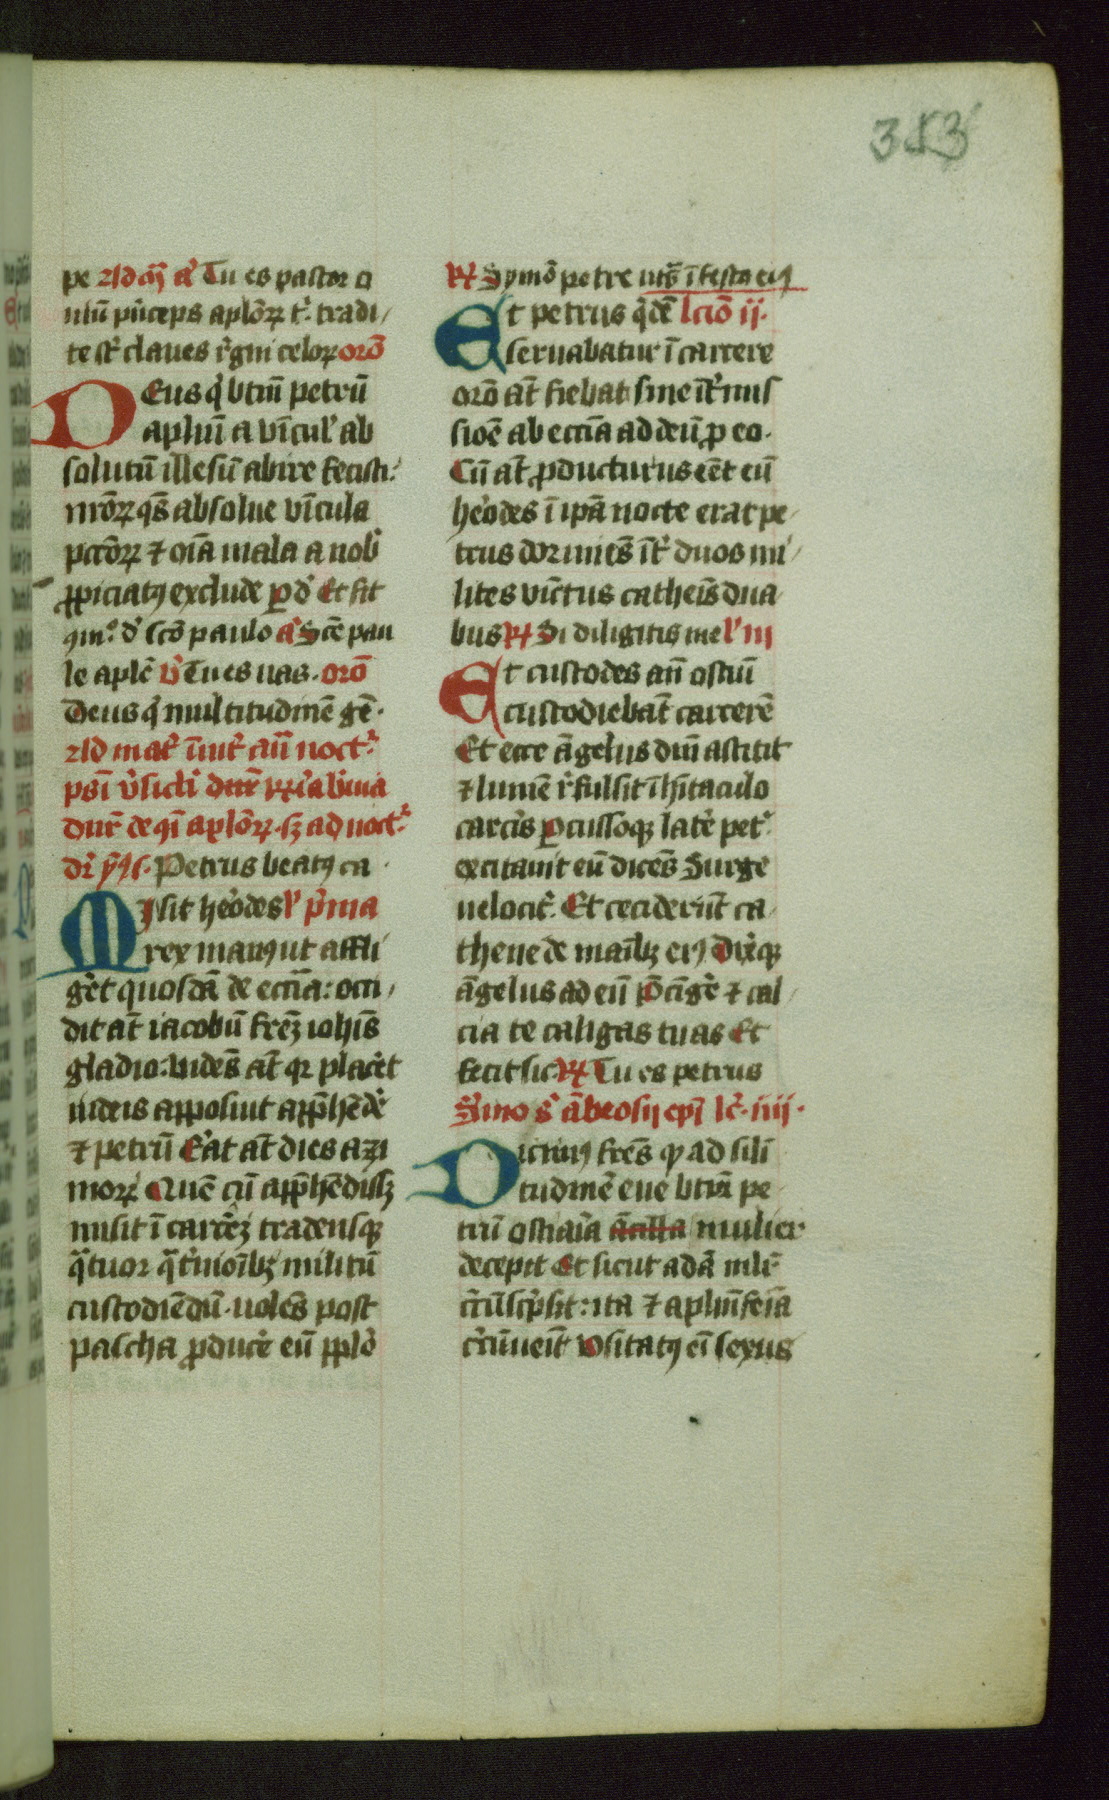 353
pe Ad mꝫ a᷒ Tu es pastor o
uiū p̄nceps aplōꝝ t᷒ tradi/
te st̄ claues r̄gni celoꝝ orō
Deus q̄ btm̄ petrū
aplm̄ a vīcul᷒ ab
solutū illesū abire fecisti
nrōꝝ qs̄ absolue vīcula
pctōꝝ ⁊ oīa mala a nob᷒
ꝓpiciatꝰ exclude ꝑ d᷒ Et fit
ꝯm̄o d᷒ scō paulo a᷒ Scē pau
le aplē v᷒ Tu es uas. orō
Deus q̄ multitudinē gē.
Ad mat᷒ īuit᷒ añ noct᷒
psī v᷒sicli
dur̄ de ꝯī aplōꝝ. sꝫ ad noct᷒
Petrus beatꝰ ca
Misit heōdes l᷒ p̄ma
rex manꝰ ut affli
ḡet quosdā de ecc̄ia: occi/
dit at̄ iacobū frēꝫ iohīs
gladio: uidēs at̄ qꝛ plac̄et
iudeis apposuit app̄hēd̄e
⁊ petrū Erat at̄ dies azi
moꝝ Quē cū app̄hēdissꝫ
misit ī carc̄eꝫ tradensqꝫ
q̄tuor q̄t̄nioībꝫ militū
custodiēdū. uolēs post
pascha ꝓduc̄e eū pplō
℟ Symō petre ut sꝫ ī festo eiꝰ
Et petrus q̄dē lctiō ij.
seruabatur ī carcere
orō at̄ fiebat sine īt̄mis
siōē ab ecc̄ia ad deū ꝓ eo.
Cū at̄ ꝓducturus eēt eū
heōdes ī ipā nocte erat pe/
trus dormiēs īt̄ duos mi/
lites vīctus cathēis dua
bus ℟ Si diligitis me l᷒ iij
Et custodes añ ostiū
custodiebāt carcerē
Et ecce āgelus dn̄i astitit
⁊ lumē r̄fulsit ī hītaculo
carc̄is ꝑcussoqꝫ lat̄e pet᷒
excitauit eū dicēs Surge
uelocit᷒. Et cecider̄ut ca
thene de maībꝫ eiꝰ Dix̄qꝫ
āgelus ad eū p̄cīḡe ⁊ cal/
cia te caligas tuas Et
fecit sic ℟ Tu es petrus
S̄mo s᷒ ābrosij ep̄i lc̄. iiij.
Dictūꝰ fr̄es qꝫ ad sili
tudinē eue btm̄ pe
trū ostiaīa ācilla mulier
decepit Et sicut adā mli᷒
c̄cūsc̄psit: ita ⁊ aplm̄ feīa
c̄cūueīt Usitatꝰ eī sexus